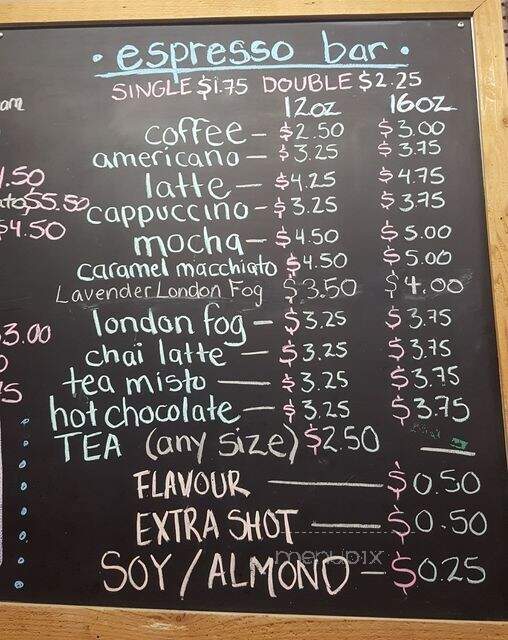 • espresso bar •
SINGLE $1.75 DOUBLE $2.25
12oz 16oz
coffee - $2.50 $3.00
americano - $3.25 $3.75
latte - $4.25 $4.75
cappuccino - $3.25 $3.75
mocha - $4.50 $5.00
caramel macchiato $4.50 $5.00
Lavender London Fog $3.50 $4.00
london fog - $3.25 $3.75
chai latte - $3.25 $3.75
tea misto - $3.25 $3.75
hot chocolate - $3.25 $3.75
TEA (any size) $2.50 —
FLAVOUR — $0.50
EXTRA SHOT — $0.50
SOY / ALMOND - $0.25
menupix
.50
$5.50
$4.50
3.00